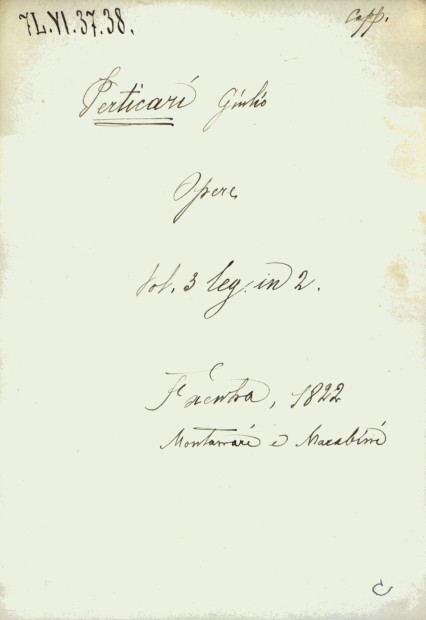 7L.VI.37.38.
Capp.
Perticari Giulio
Opere
Vol. 3 leg. in 2.
Faenza, 1822
Montanari e Marabini
C